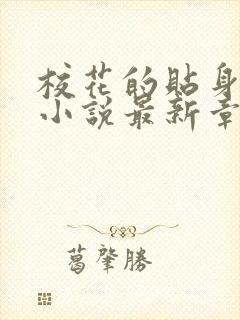 校花的貼身
小說最新章
葛肇勝